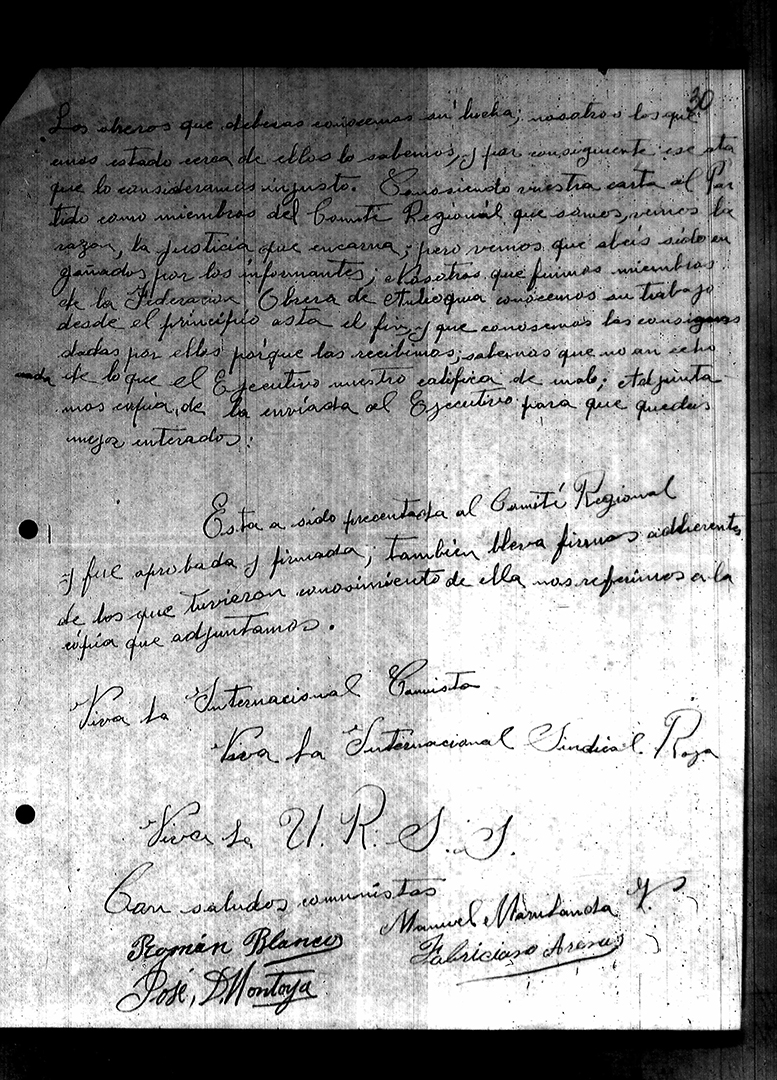 30
Los obreros que deberas conosemos su lucha; nosotros los que
emos estado cerca de ellos lo sabemos, y por consiguiente ese ata
que lo consideramos injusto. Conosiendo vuestra carta al Par
tido como miembros del Comité Regional que somos, vemos la
razon, la justicia que encarna; pero vemos que abeis sido en
gañados por los informantes; Nosotros que fuimos miembros
de la Federacion Obrera de Antioquia conocemos su trabajo
desde el principio asta el fin, y que conosemos las consignas
dadas por ellos porque las recibimos; sabemos que no an echo
nada de lo que el Ejecutivo nuestro califica de malo; Adjunta
mos copia, de la enviada al Ejecutivo para que quedeis
mejor enterados.
Esta a sido precentada al Comité Regional
y fue aprobada y firmada; también lleva firmas adherentes
de los que tuvieron conosimiento de ella nos referimos a la
cópia que adjuntamos.
Viva la Internacional Comista
Viva la Internacional Sindical Roja
Viva la U. R. S. S.
Con saludos comunistas
Manuel Marulanda V.
Román Blanco
Fabriciano Arenas
José, D Montoya